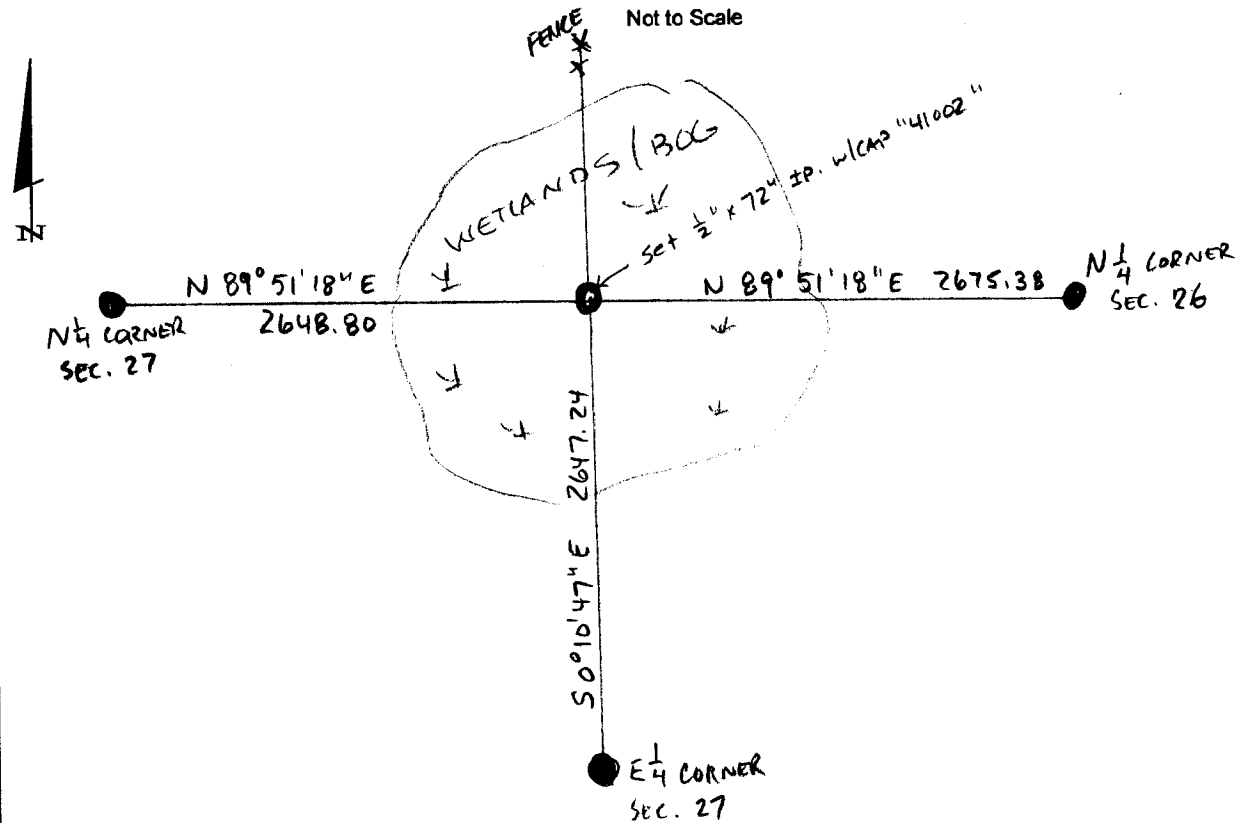 Not to Scale
FENCE
N
WETLANDS / BOG
set 1/2" x 72" IP. w/CAP "41002"
N 89° 51' 18" E
2648.80
N 89° 51' 18" E 2675.38
N 1/4 CORNER
SEC. 27
N 1/4 CORNER
SEC. 26
S 0° 10' 47" E 2647.24
E 1/4 CORNER
SEC. 27